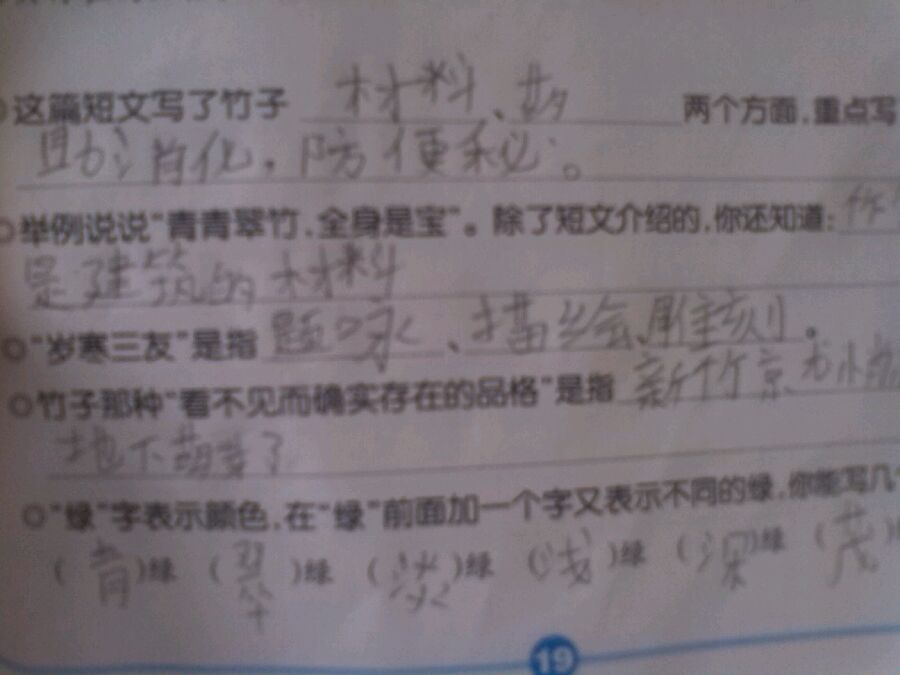 这篇短文写了竹子 材料、 两个方面,重点写
助消化,防便秘。
举例说说“青青翠竹,全身是宝”。除了短文介绍的,你还知道:作
是建筑的材料
“岁寒三友”是指 题咏、描绘、雕刻。
竹子那种“看不见而确实存在的品格”是指 新竹
地下萌芽了
“绿”字表示颜色,在“绿”前面加一个字又表示不同的绿,你能写几个
(青)绿 (翠)绿 (淡)绿 (浅)绿 (深)绿 (茂)
19